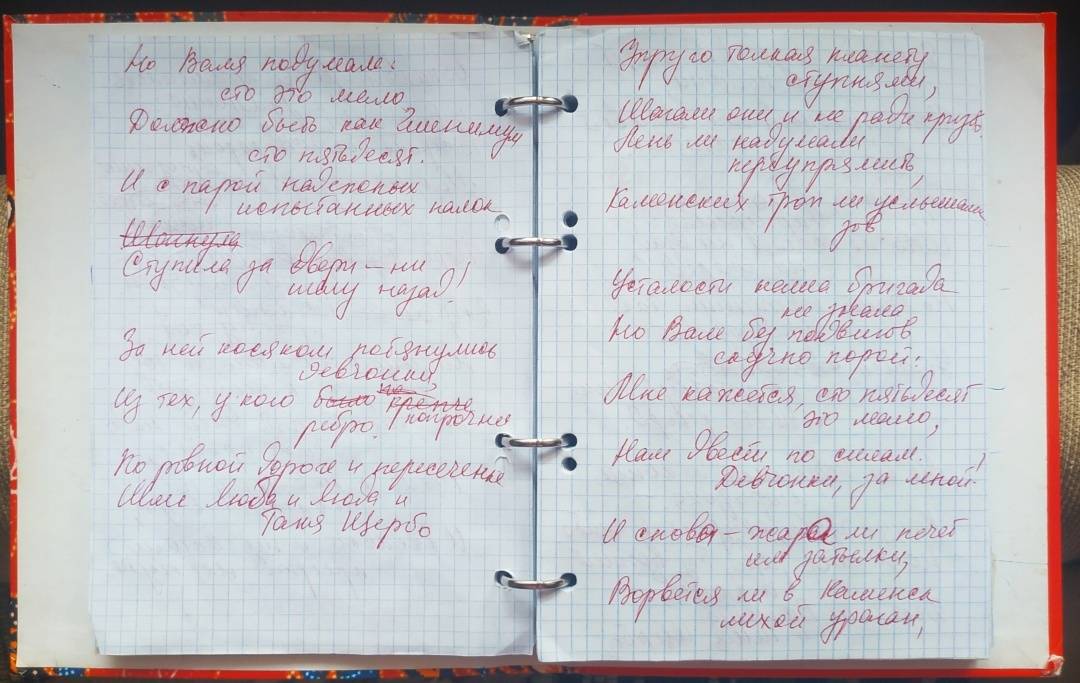 Но Валя подумала:
сто это мало,
Должно быть как
сто пятьдесят.
И с парой надежных
испытанных палок
Шагнула
Ступила за дверь – ни
шагу назад!
За ней косяком потянулись
девчонки,
Из тех, у кого было
ребро. попрочнее
По ровной дороге и пересеченке
Шли Люба и Люда и
Таня Щербо
Упруго толкая планету
ступнями,
Шагали они и не ради призов,
Лень ли надумали
переупрямить,
Каменских троп ли услышали
зов.
Усталости наша бригада
не знала
Но Вале без подвигов
скучно порой:
Мне кажется, сто пятьдесят –
это мало,
Нам двести по силам.
Девчонки, за мной!
И снова – жара ли печет
им затылки,
Ворвется ли в Каменск
лихой ураган,